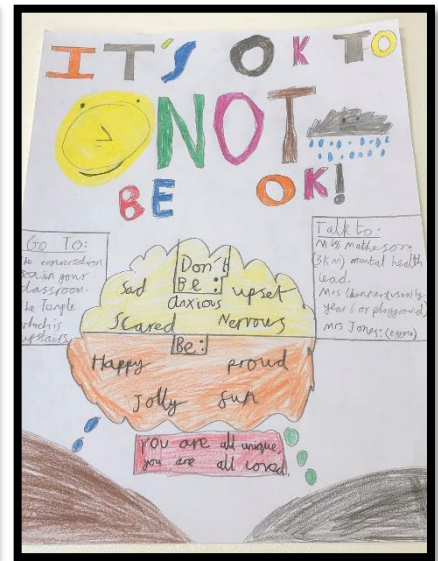 IT'S OK TO
NOT
BE OK!
Go To:
conversation
in your
classroom.
The Temple
which is
upstairs
Talk to:
Miss Matheson
(3KM) mental health
lead.
Mrs Skinner (usually
year 6 or playground)
Mrs Jones:
Don't
Be:
Sad
anxious
upset
Scared
Nervous
Be:
Happy
proud
Jolly
fun
you are all unique,
you are all loved.